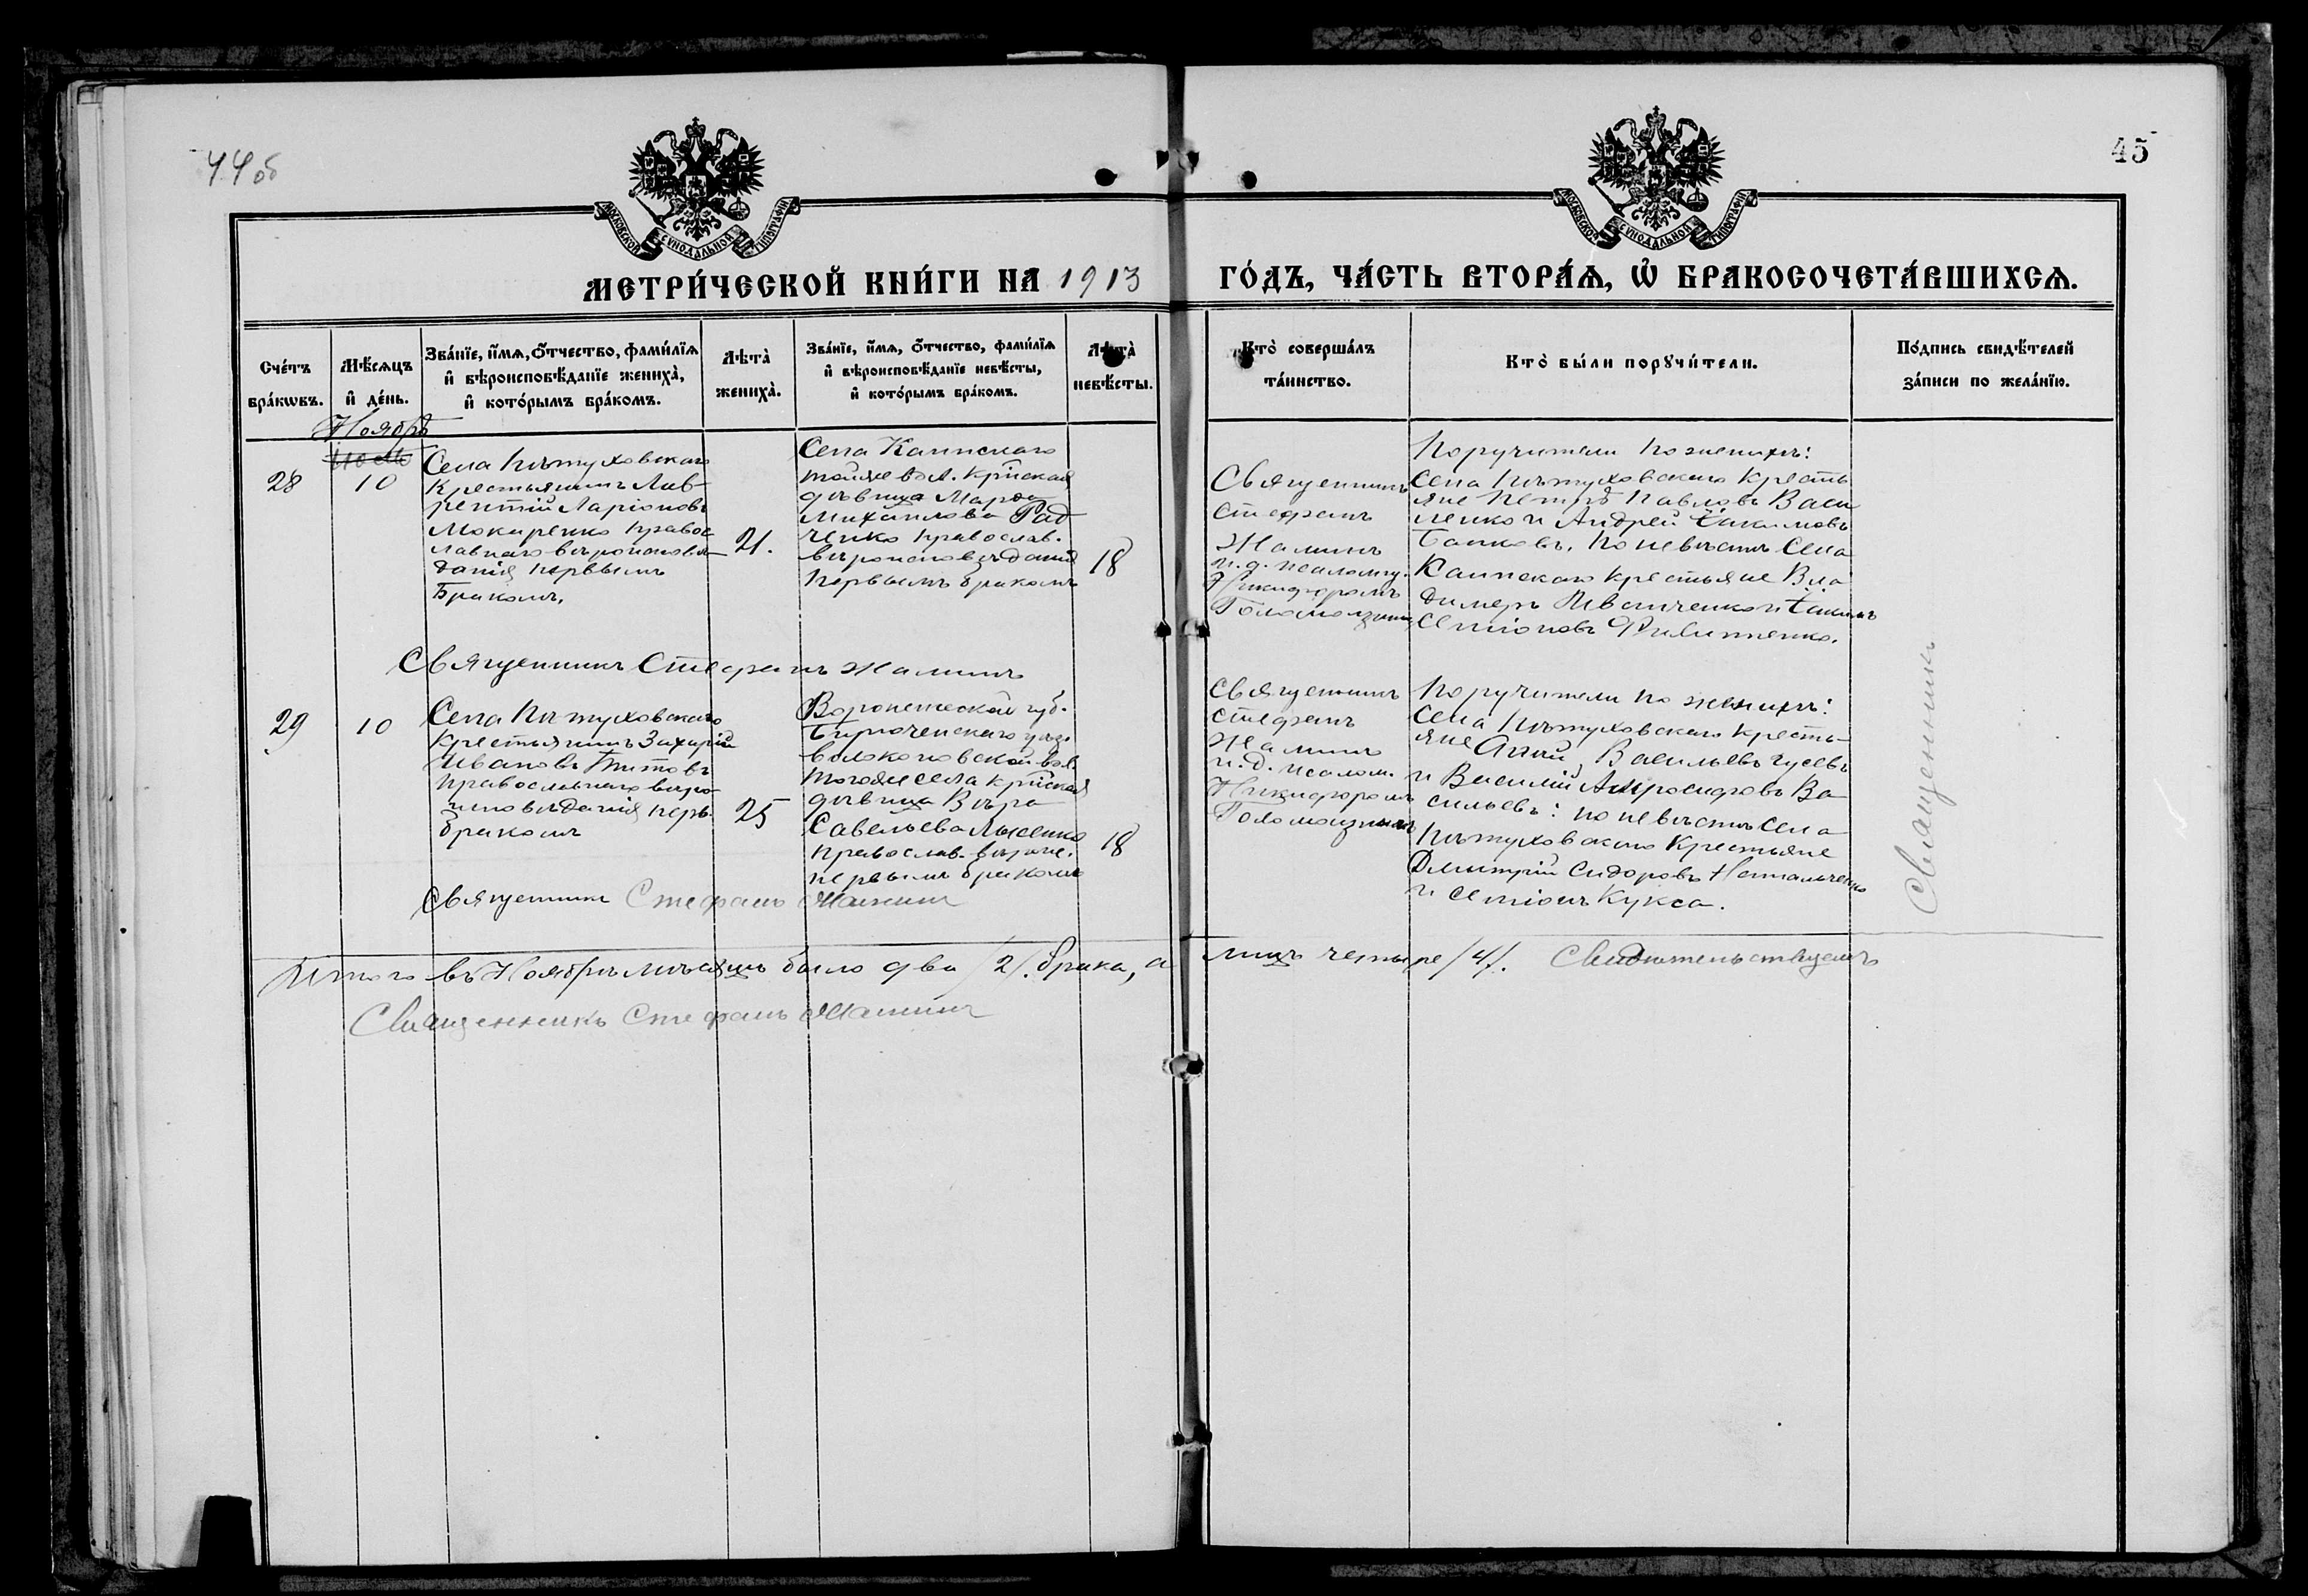 44 об
45
МОСКОВСКОЙ СѴНОДАЛЬНОЙ ТИПОГРАФІИ
МОСКОВСКОЙ СѴНОДАЛЬНОЙ ТИПОГРАФІИ
МЕТРИ́ЧЕСКОЙ КНИ́ГИ НА 1913 ГО́ДЪ, ЧА́СТЬ ВТОРА́Ѧ, Ѽ БРАКОСОЧЕТА́ВШИХСѦ.
Сче́тъ
бра́кѡвъ.
Мѣ́сѧцъ
и҆ де́нь.
Зва́нїе, и҆́мѧ, ѻ҆́тчество, фами́лїѧ
и҆ вѣроисповѣ́данїе жениха̀,
и҆ кото́рымъ бра́комъ.
Лѣта̀
жениха̀.
Зва́нїе, и҆́мѧ, ѻ҆́тчество, фами́лїѧ
и҆ вѣроисповѣ́данїе невѣ́сты,
и҆ кото́рымъ бра́комъ.
Лѣта̀
невѣ́сты.
Кто̀ соверша́лъ
та́инство.
Кто̀ бы́ли порꙋчи́тели.
По́дпись свидѣ́телей
за́писи по жела́нїю.
Ноябрь
28
10
Села Пѣтуховскаго
Крестьянинъ Лав-
рентій Ларіоновъ
Мокиренко православ-
славнаго вѣроисповѣ-
данія первымъ
Бракомъ.
21.
Села Каинскаго
тойже вол. кр͡нская
дѣвица Марѳа
Михаилова Рад
ченко православ.
вѣроисповѣданія
первымъ бракомъ
18
Священникъ
Стефанъ
Жаминъ
и. д. псаломщ.
Никифоромъ
Голомазинъ
Поручители по женихѣ:
Села Пѣтуховскаго Кресть
яне Петръ Павловъ Васи
ленко и Андрей Іакимовъ
Батковъ. по невѣстѣ Села
Каинскаго крестьяне Вла
димеръ Иванченко и Іакимъ
Семіоновъ Филипенко.
Священникъ Стефанъ Жаминъ
29
10
Села Пѣтуховскаго
Крестьянинъ Захарій
Ивановъ Титовъ
православнаго вѣро-
исповѣданія перв.
бракомъ
25
Воронежской губ.
Бирюченскаго уѣзд.
волоконовской вол.
тогоже села кр͡нская
дѣвица Вѣра
Савельева Лысенко
православ. вѣроис.
первымъ бракомъ
18
Священникъ
Стефанъ
Жаминъ
и. д. псалом.
Никифоромъ
Голомазинъ
Поручители по женихѣ:
Села Пѣтуховскаго Кресть-
яне Васильевъ Гусевъ
и Василій Амвросифовъ Ва
сильевъ: по невѣстѣ Села
Пѣтуховскаго Крестьяне
Дмитрій Сидоровъ
и Семіонъ Кукса.
Священникъ Стефанъ Жаминъ
Итого въ Ноябрѣ мѣсяцѣ было два /2/. брака, а лицъ четыре /4/. Свидѣтельствуемъ
Священникъ Стефанъ Жаминъ
Священникъ